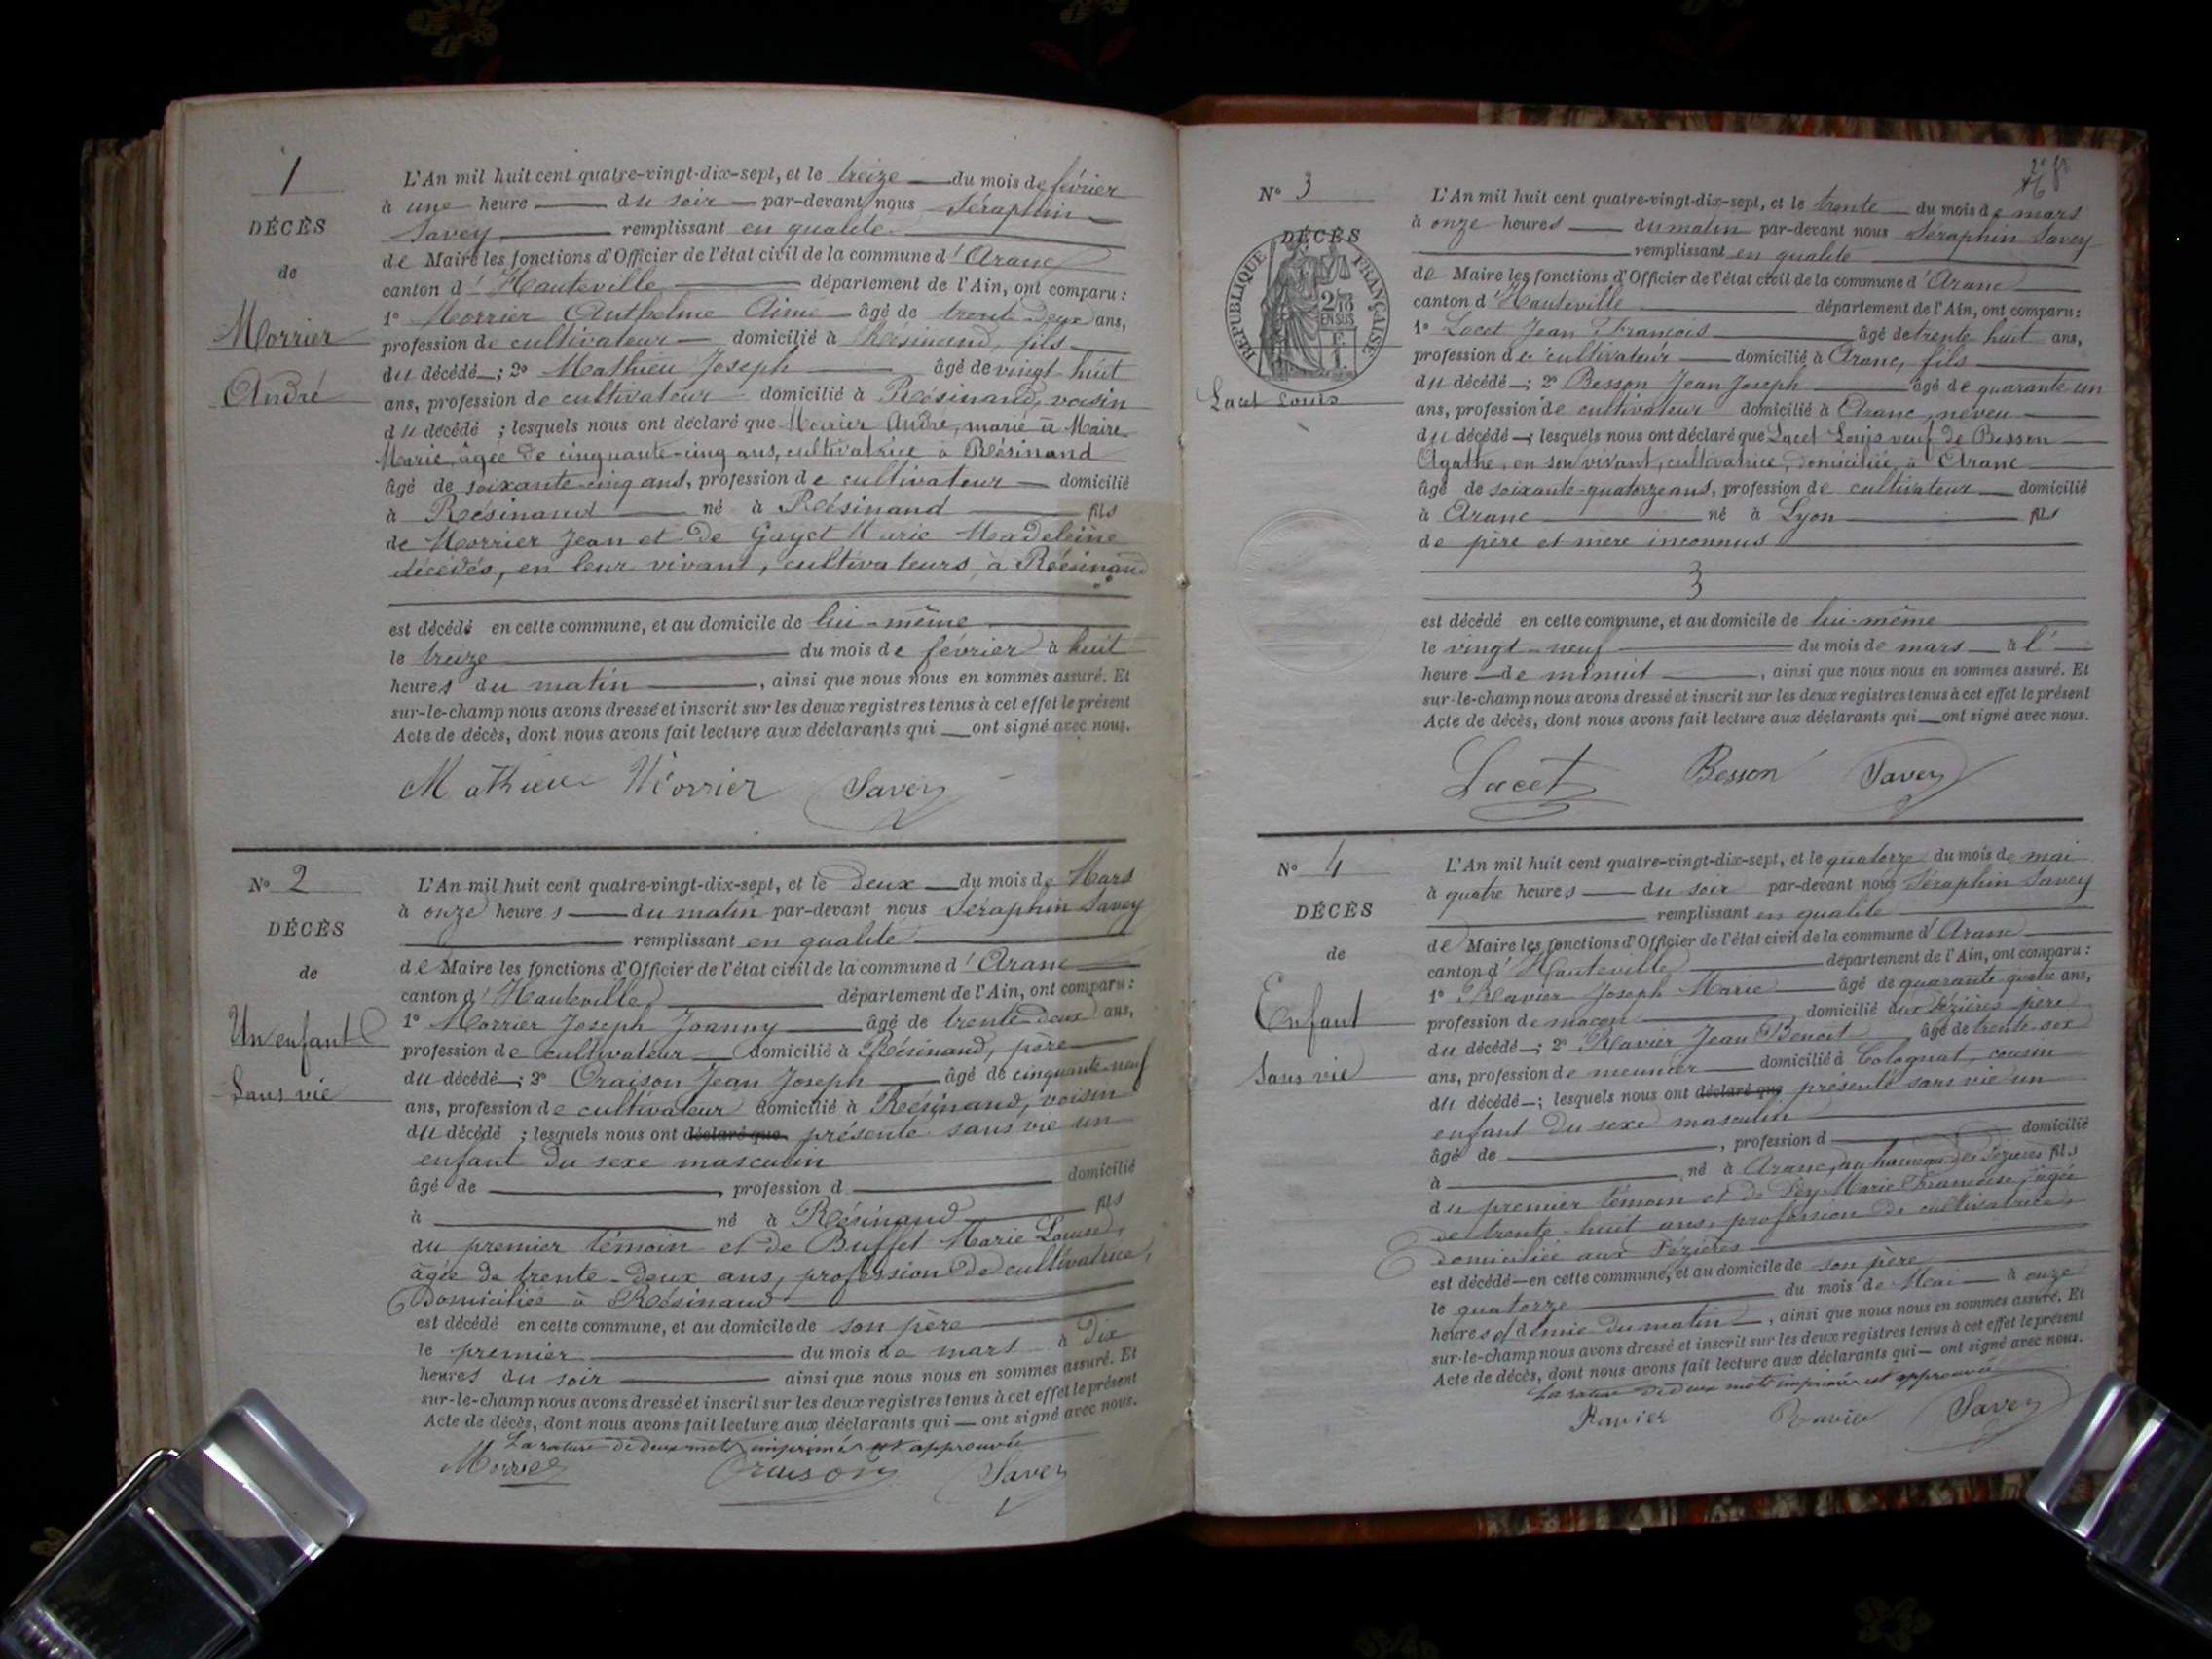 1
DÉCÈS
de
Morrier
André
L'An mil huit cent quatre-vingt-dix-sept, et le treize du mois de février
à une heure du soir par-devant nous Séraphin
Savey remplissant en qualité
de Maire les fonctions d'Officier de l'état civil de la commune d'Aranc
canton d'Hauteville département de l'Ain, ont comparu :
1° Morrier Anthelme Aimé âgé de trente deux ans,
profession de cultivateur domicilié à Résinand, fils
du décédé ; 2° Mathieu Joseph âgé de vingt huit
ans, profession de cultivateur domicilié à Résinand, voisin
du décédé ; lesquels nous ont déclaré que Morrier André, marié à Maire
Marie, âgée de cinquante-cinq ans, cultivatrice à Résinand
âgé de soixante-cinq ans, profession de cultivateur domicilié
à Résinand né à Résinand fils
de Morrier Jean et de Gayet Marie Madeleine
décédés, en leur vivant, cultivateurs à Résinand
est décédé en cette commune, et au domicile de lui-même
le treize du mois de février à huit
heures du matin, ainsi que nous nous en sommes assuré. Et
sur-le-champ nous avons dressé et inscrit sur les deux registres tenus à cet effet le présent
Acte de décès, dont nous avons fait lecture aux déclarants qui ont signé avec nous.
Mathieu Morrier Savey
N° 2
DÉCÈS
de
Un enfant
Sans vie
L'An mil huit cent quatre-vingt-dix-sept, et le deux du mois de Mars
à onze heures du matin par-devant nous Séraphin Savey
remplissant en qualité
de Maire les fonctions d'Officier de l'état civil de la commune d'Aranc
canton d'Hauteville département de l'Ain, ont comparu :
1° Morrier Joseph Joanny âgé de trente deux ans,
profession de cultivateur domicilié à Résinand, père
du décédé ; 2° Oraison Jean Joseph âgé de cinquante-neuf
ans, profession de cultivateur domicilié à Résinand, voisin
du décédé ; lesquels nous ont déclaré que présenté sans vie un
enfant du sexe masculin
âgé de , profession d domicilié
à né à Résinand fils
du premier témoin et de Buffet Marie Louise,
âgée de trente-deux ans, profession de cultivatrice,
domiciliée à Résinand
est décédé en cette commune, et au domicile de son père
le premier du mois de mars à dix
heures du soir ainsi que nous nous en sommes assuré. Et
sur-le-champ nous avons dressé et inscrit sur les deux registres tenus à cet effet le présent
Acte de décès, dont nous avons fait lecture aux déclarants qui ont signé avec nous.
La rature de deux mots imprimés est approuvée
Morrier Oraison Savey
N° 3
DÉCÈS
RÉPUBLIQUE FRANÇAISE
2/10
EN SUS
Lacet Louis
L'An mil huit cent quatre-vingt-dix-sept, et le trente du mois de mars
à onze heures du matin par-devant nous Séraphin Savey
remplissant en qualité
de Maire les fonctions d'Officier de l'état civil de la commune d'Aranc
canton d'Hauteville département de l'Ain, ont comparu :
1° Lacet Jean François âgé de trente huit ans,
profession de cultivateur domicilié à Aranc, fils
du décédé ; 2° Besson Jean Joseph âgé de quarante un
ans, profession de cultivateur domicilié à Aranc, neveu
du décédé ; lesquels nous ont déclaré que Lacet Louis veuf de Besson
Agathe, en son vivant, cultivatrice, domiciliée à Aranc
âgé de soixante-quatorze ans, profession de cultivateur domicilié
à Aranc né à Lyon fils
de père et mère inconnus
3
est décédé en cette commune, et au domicile de lui-même
le vingt-neuf du mois de mars à l'
heure de minuit, ainsi que nous nous en sommes assuré. Et
sur-le-champ nous avons dressé et inscrit sur les deux registres tenus à cet effet le présent
Acte de décès, dont nous avons fait lecture aux déclarants qui ont signé avec nous.
Lacet Besson Savey
N° 4
DÉCÈS
de
Enfant
Sans vie
L'An mil huit cent quatre-vingt-dix-sept, et le quatorze du mois de mai
à quatre heures du soir par-devant nous Séraphin Savey
remplissant en qualité
de Maire les fonctions d'Officier de l'état civil de la commune d'Aranc
canton d'Hauteville département de l'Ain, ont comparu :
1° Ravier Joseph Marie âgé de quarante quatre ans,
profession de maçon domicilié aux Pézières père
du décédé ; 2° Ravier Jean Benoit âgé de trente-six
ans, profession de meunier domicilié à Colognat, cousin
du décédé ; lesquels nous ont déclaré que présenté sans vie un
enfant du sexe masculin
âgé de , profession d domicilié
à né à Aranc, au hameau des Pézières fils
du premier témoin et de Pey Marie Françoise, âgée
de trente-huit ans, profession de cultivatrice,
domiciliée aux Pézières
est décédé en cette commune, et au domicile de son père
le quatorze du mois de Mai à onze
heures et demie du matin, ainsi que nous nous en sommes assuré. Et
sur-le-champ nous avons dressé et inscrit sur les deux registres tenus à cet effet le présent
Acte de décès, dont nous avons fait lecture aux déclarants qui ont signé avec nous.
La rature de deux mots imprimés est approuvée
Ravier Ravier Savey